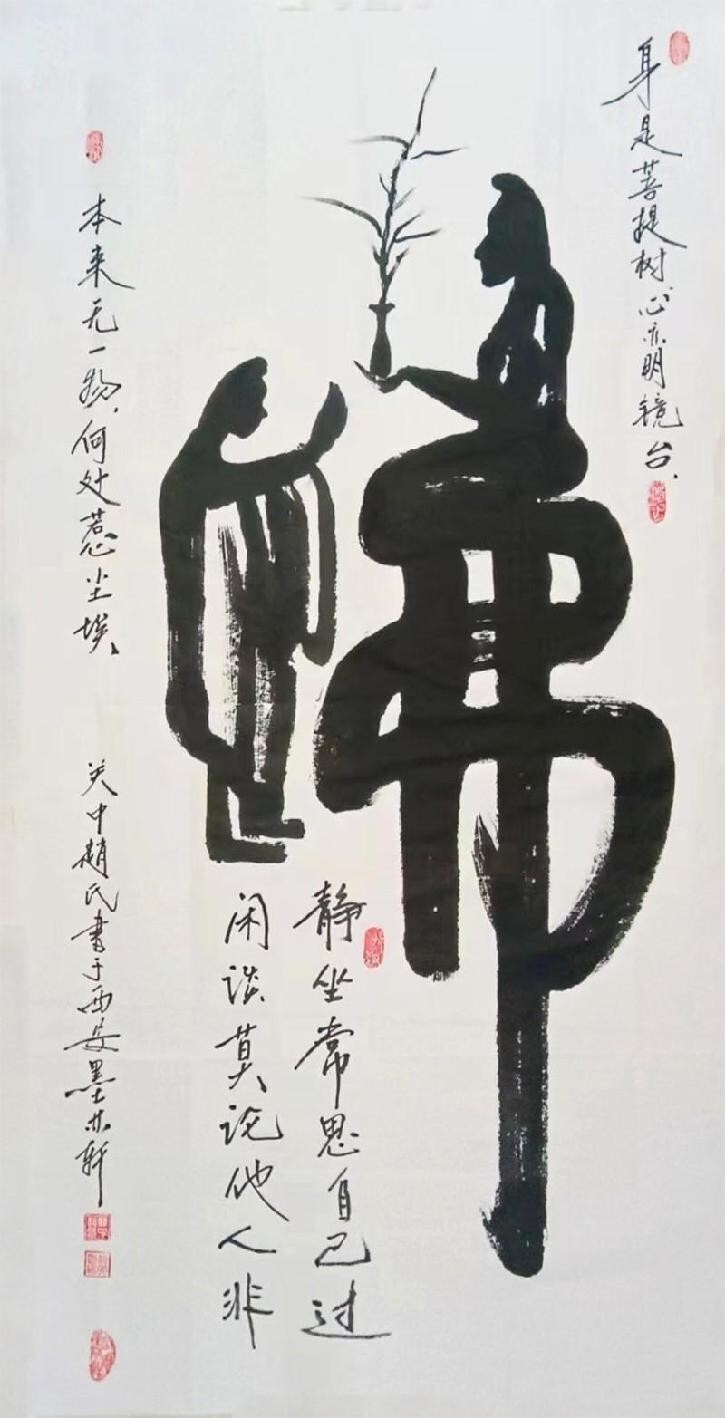 身是菩提树心亦明镜台
佛
静坐常思自己过
闲谈莫论他人非
本来无一物何处惹尘埃
关中赵氏书于西安墨亦轩